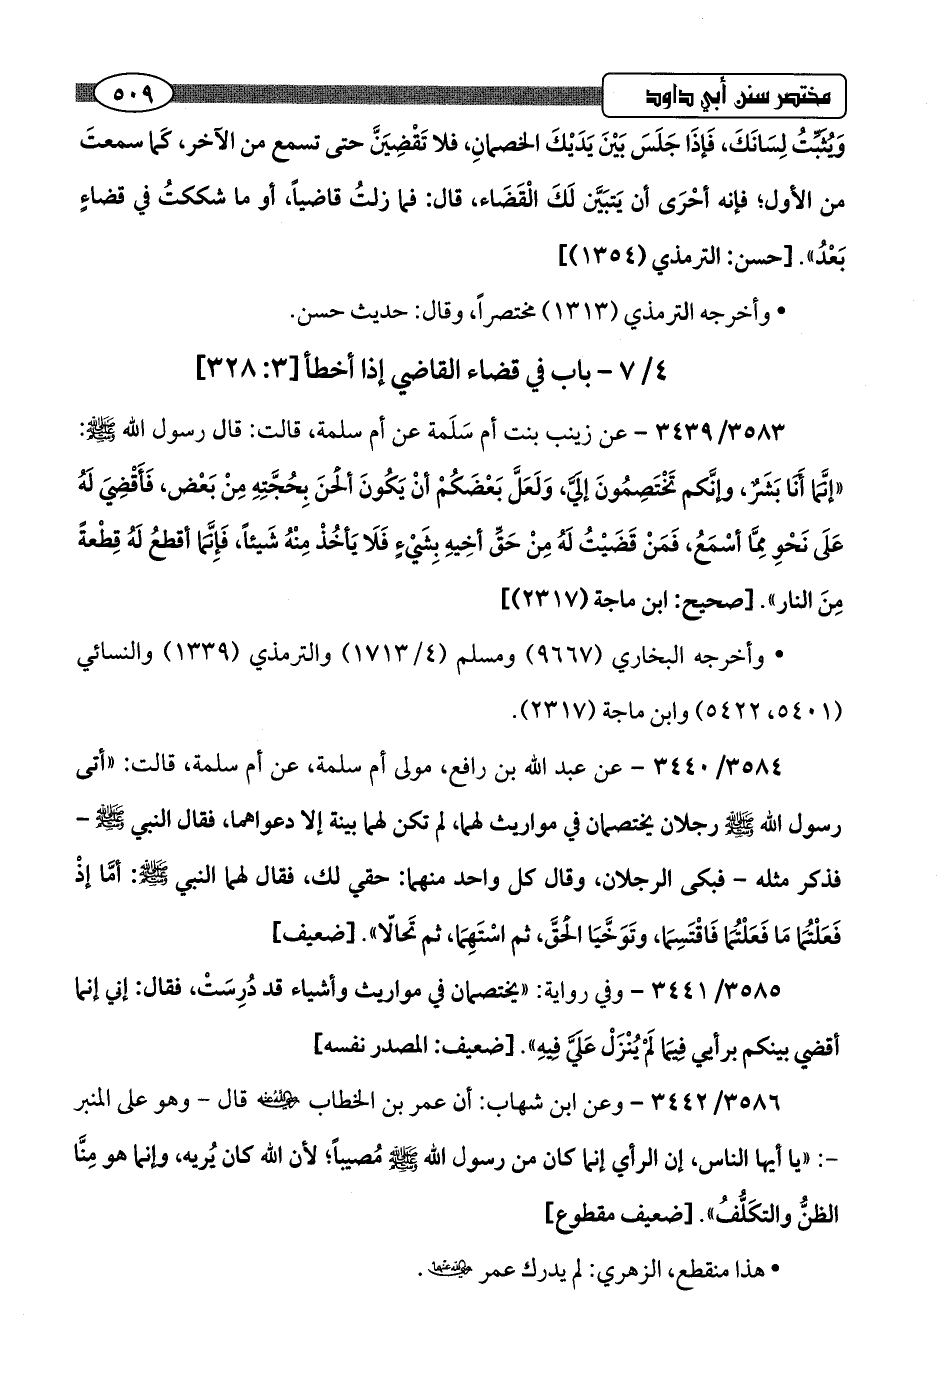 مختصر سنن أبي داود ٥٠٩
وَيُثَبِّتُ لِسَانَكَ، فَإِذَا جَلَسَ بَيْنَ يَدَيْكَ الخصمانِ، فلا تَقْضِيَنَّ حتى تسمع من الآخر، كَما سمعتَ
من الأول؛ فإنه أحْرَى أن يَتَبَيَّن لَكَ الْقَضَاء، قال: فما زلتُ قاضياً، أو ما شككتُ في قضاءٍ
بَعْدُ». [حسن: الترمذي (١٣٥٤)]
• وأخرجه الترمذي (١٣١٣) مختصراً، وقال: حديث حسن.
٧/٤ - باب في قضاء القاضي إذا أخطأ [٣: ٣٢٨]
٣٤٣٩/٣٥٨٣ - عن زينب بنت أم سَلَمة عن أم سلمة، قالت: قال رسول الله ﷺ:
«إنَّمَا أنَا بَشَرٌ، وإنَّكم تَخْتَصِمُونَ إليَّ، وَلَعَلَّ بَعْضَكُمْ أنْ يَكُونَ ألحْنَ بِحُجَّتِهِ مِنْ بَعْض، فَأَقْضِيَ لَهُ
عَلَى نَحْوِ مِمَّا أسْمَعُ، فَمَنْ قَضَيْتُ لَهُ مِنْ حَقِّ أخِيهِ بِشَيْءٍ فَلَا يَأخُذْ مِنْهُ شَيئاً، فَإِنَّمَا أقطعُ لَهُ قِطْعةً
مِنَ النار». [صحيح: ابن ماجة (٢٣١٧)]
• وأخرجه البخاري (٩٦٦٧) ومسلم (١٧١٣/٤) والترمذي (١٣٣٩) والنسائي
(٥٤٠١، ٥٤٢٢) وابن ماجة (٢٣١٧).
٣٤٤٠/٣٥٨٤ - عن عبد الله بن رافع، مولى أم سلمة، عن أم سلمة، قالت: «أتى
رسول الله ﷺ رجلان يختصمان في مواريث لهما، لم تكن لهما بينة إلا دعواهما، فقال النبي ﷺ -
فذكر مثله - فبكى الرجلان، وقال كل واحد منهما: حقي لك، فقال لهما النبي ﷺ: أمَّا إذْ
فَعَلْتُمَا مَا فَعَلْتُمَا فَاقْتَسِمَا، وتَوَخَّيَا الحَقَّ، ثم اسْتَهِمَا، ثم تَحالّا». [ضعيف]
٣٤٤١/٣٥٨٥ - وفي رواية: «يختصمان في مواريث وأشياء قد دُرِسَتْ، فقال: إني إنما
أقضي بينكم برأيي فِيمَا لَمْ يُنْزَلْ عَلَيَّ فِيهِ». [ضعيف: المصدر نفسه]
٣٤٤٢/٣٥٨٦ - وعن ابن شهاب: أن عمر بن الخطاب رضي الله عنه قال - وهو على المنبر
-: «يا أيها الناس، إن الرأي إنما كان من رسول الله ﷺ مُصيباً؛ لأن الله كان يُريه، وإنما هو مِنَّا
الظنُّ والتكَلُّفُ». [ضعيف مقطوع]
• هذا منقطع، الزهري: لم يدرك عمر رضي الله عنهما.